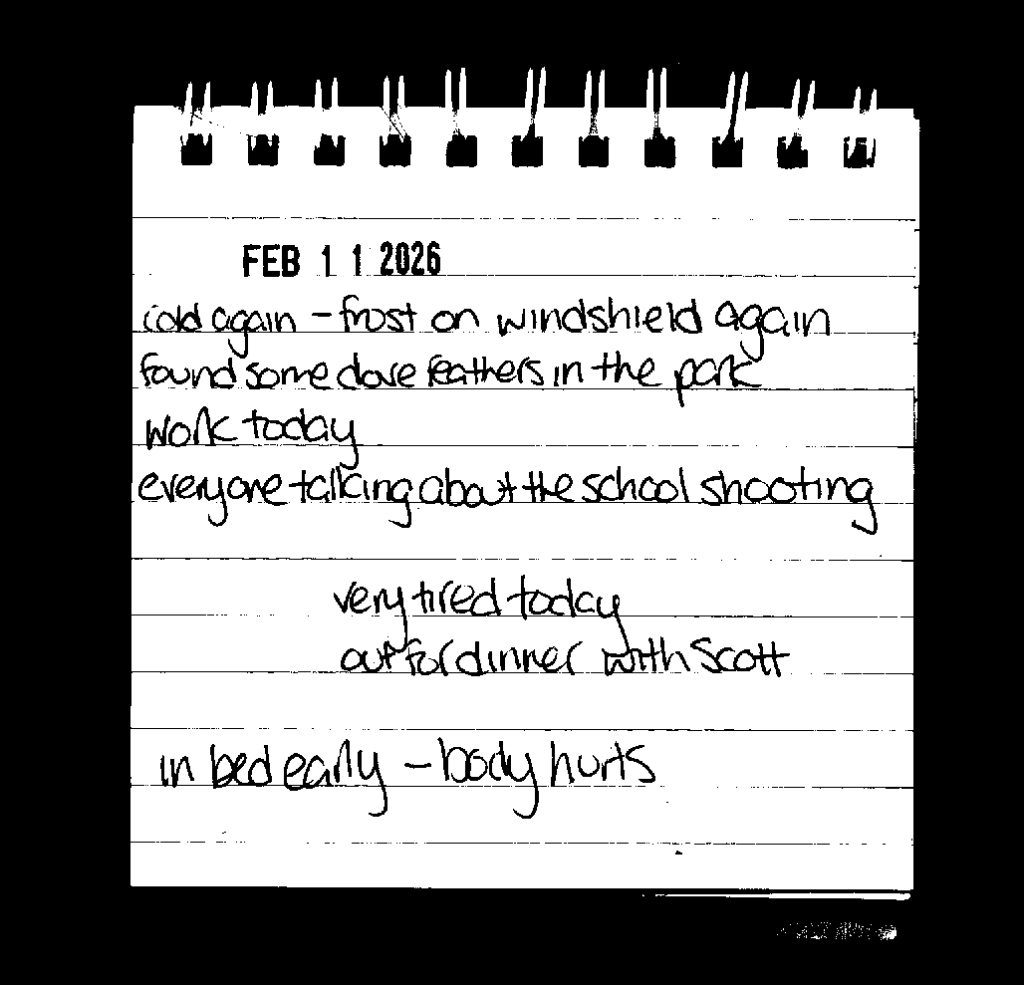 FEB 11 2026
cold again - frost on windshield again
found some dove feathers in the park
work today
everyone talking about the school shooting
very tired today
out for dinner with Scott
in bed early - body hurts